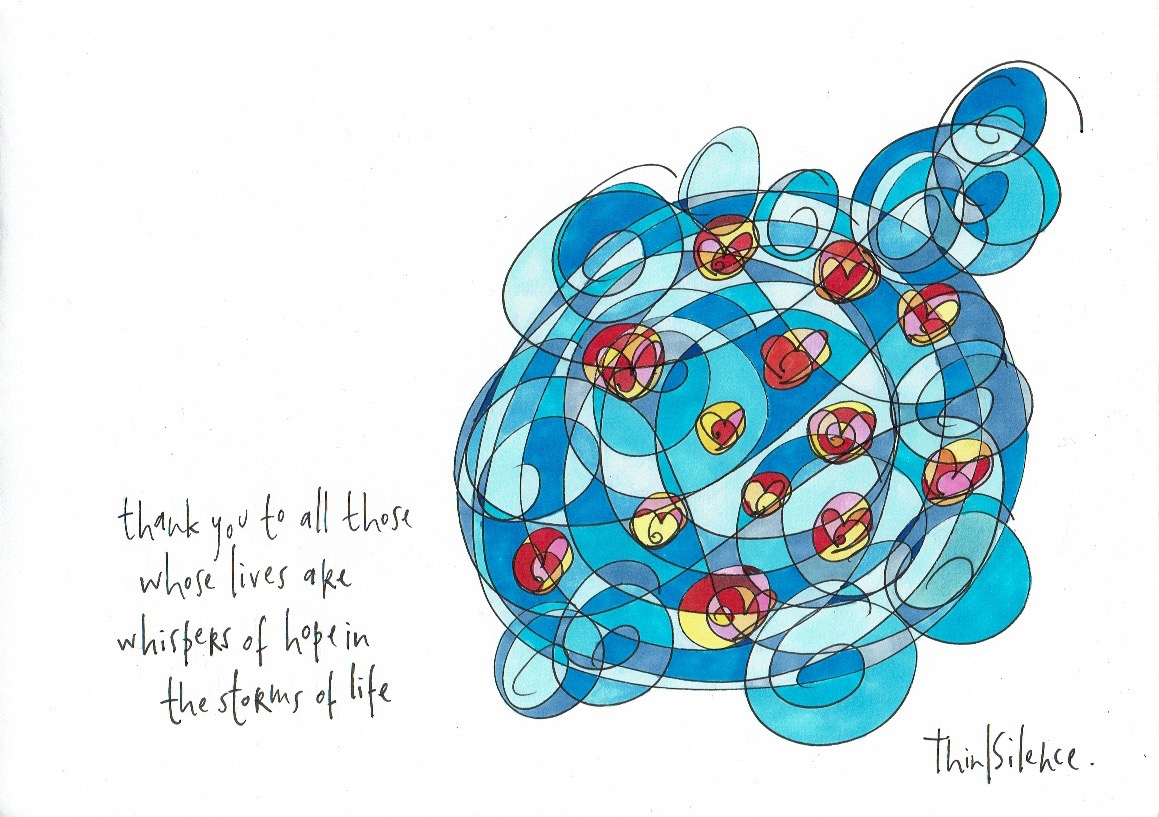 thank you to all those
whose lives are
whispers of hope in
the storms of life
Thin|Silence.